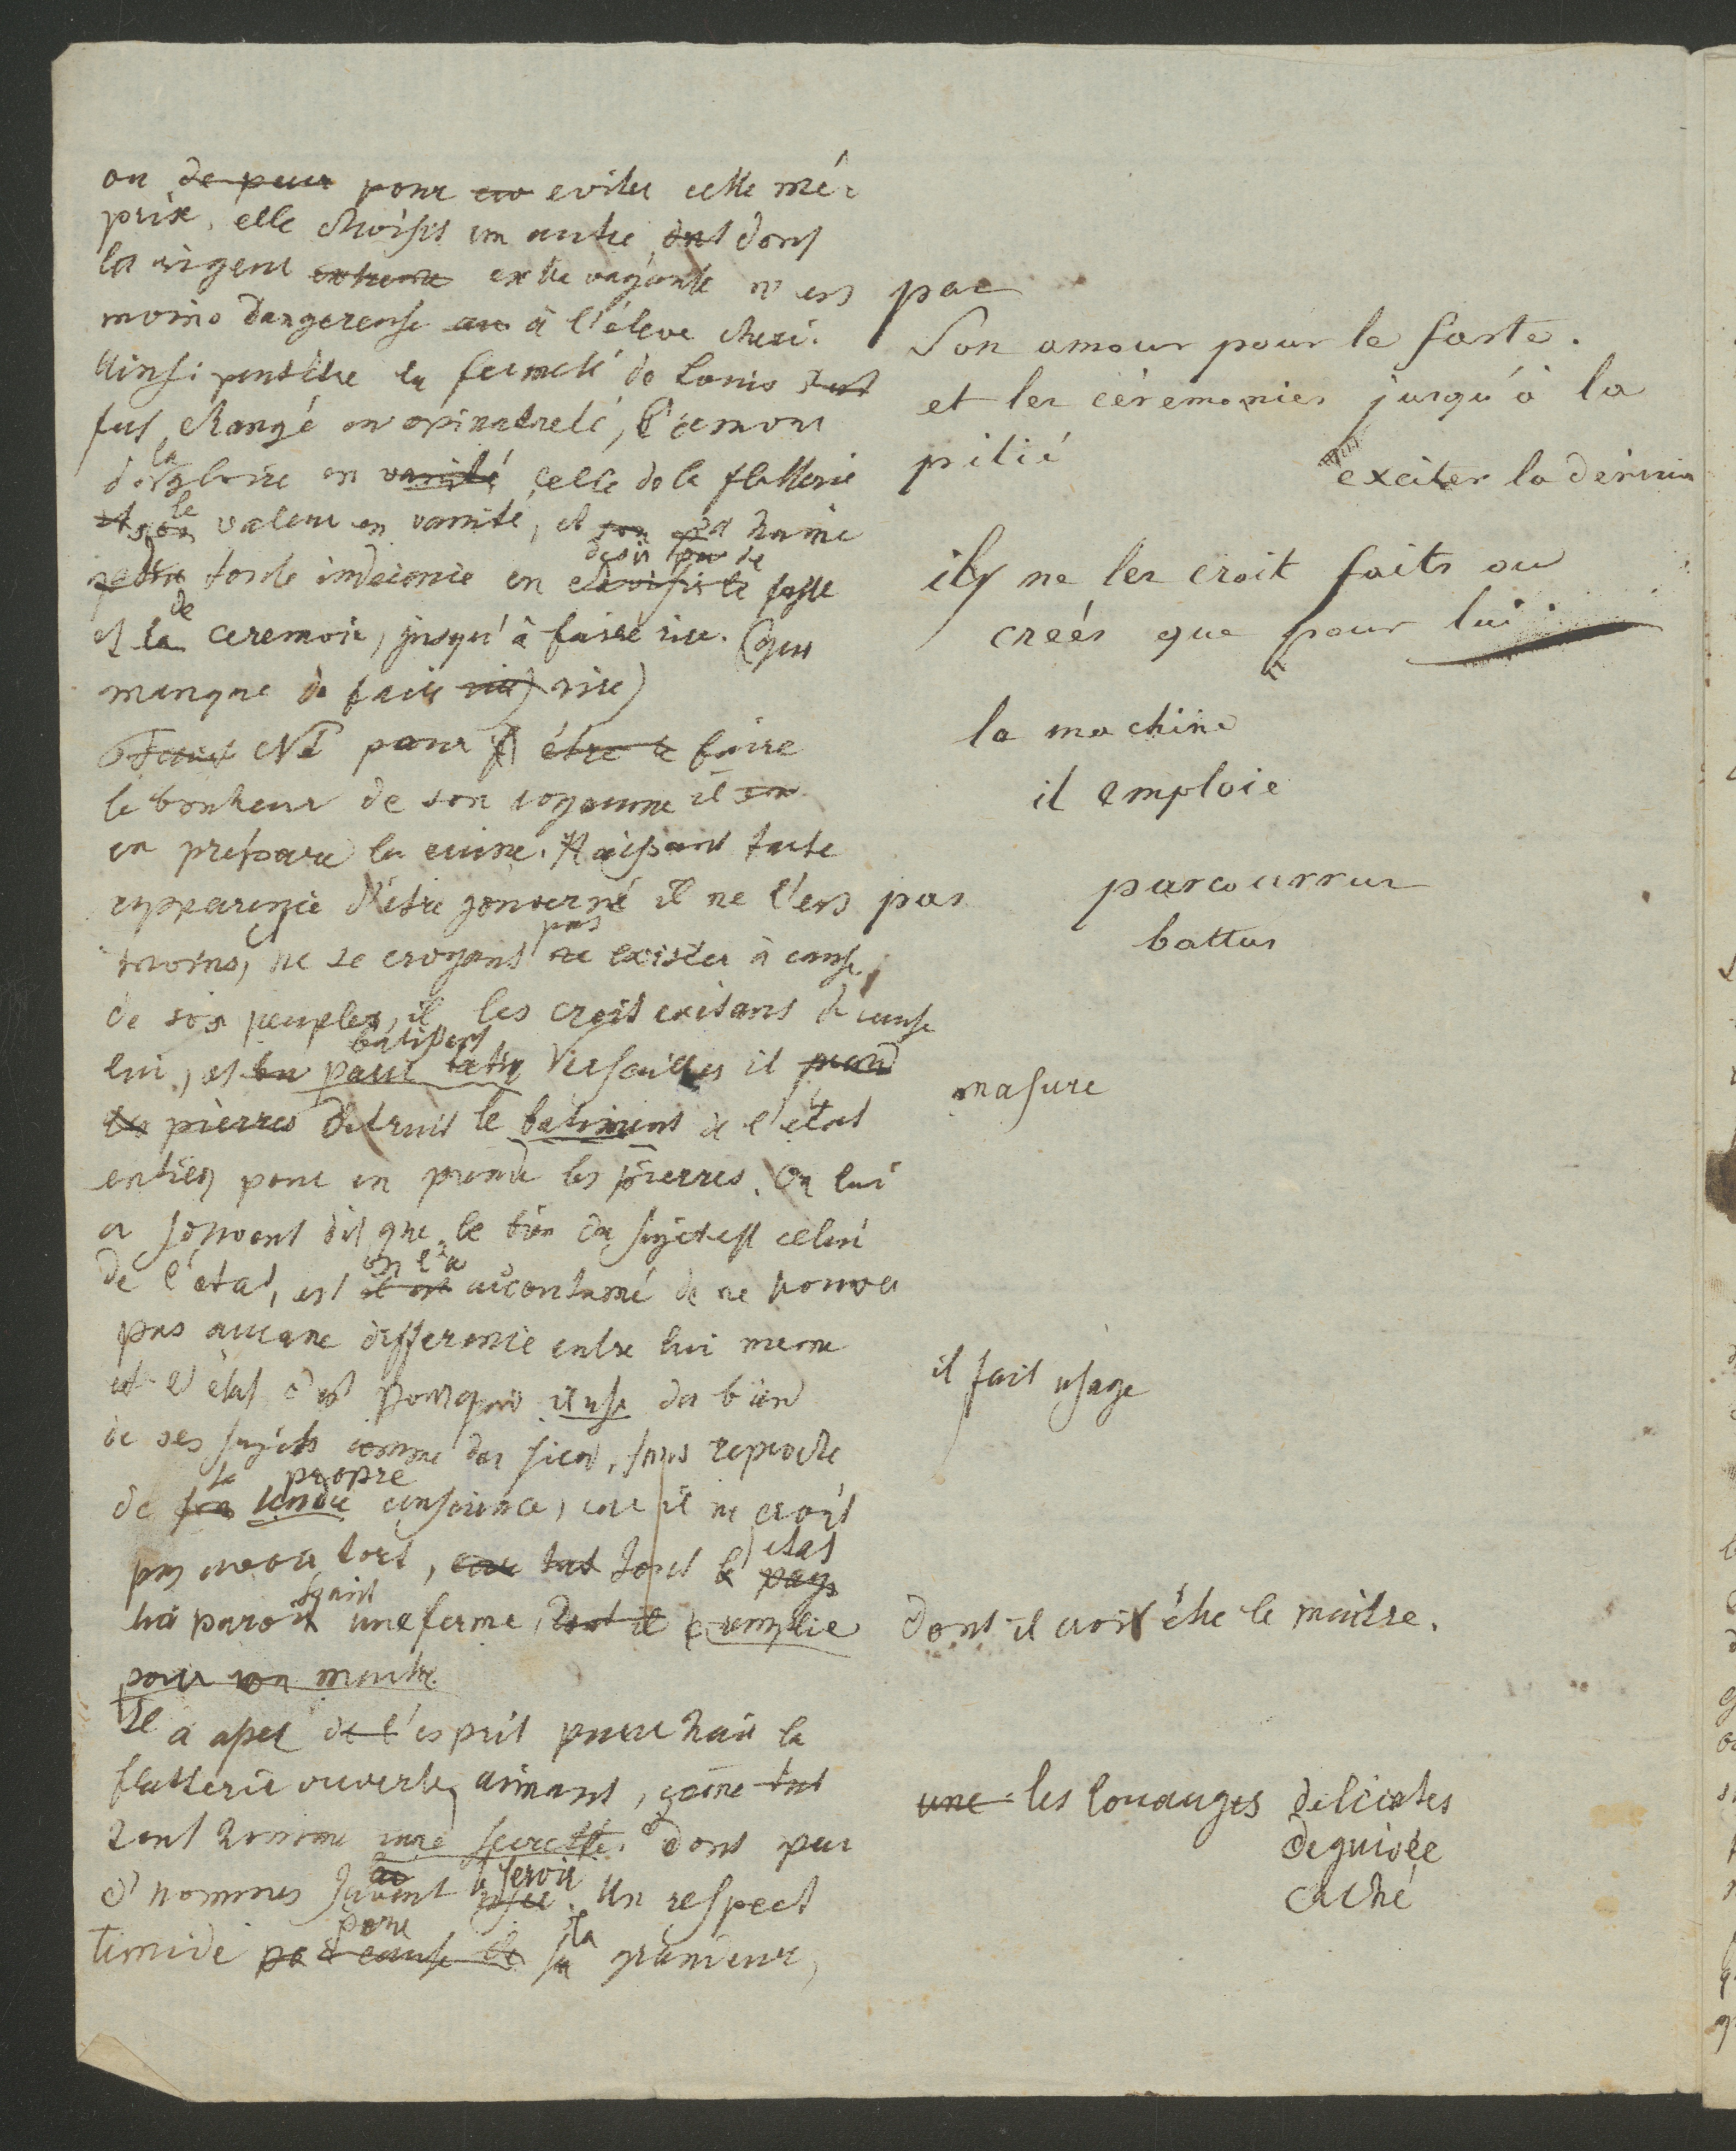 ou de peur pour evo eviter cette mé-
prise, elle choisit un autre dont dont
la rigeur extreme extravagante n'est pas
moins dangereuse au à l'éleve cheri.
Ainsi peutêtre la fermeté de Louis
fut changé en opinatreté, l'amour
de la gloire en vanité celle de la flatterie
et son la valeur en vanité, et son sa haine
toute indecenie en desir de faste
et la de ceremoie, jusqu'à faire rire. (que
manque de faire rire) rire)
pour être le faire
le bonheur de son royaume il son
en prepare la ruine. Haissant toute
apparence d'être gouverné il ne l'est pas
moins, ne se croyant pas exister à cause
de son peuples, il les croit exitans à cause
lui, et pour batir batissant Versailles il prend
les pierres detruit le batiment de l'état
entier pour en prendre les pierres. On lui
a souvent dit que le bien du sujet est celui
de l'état, est il est on l'a accoutumé de ne trouver
pas aucune difference entre lui meme
et l'état c'est pourquoi il use du bien
de ses sujets comme du sien, sans reproche
de son la tendre propre conscience, car il ne croit
pas avoir tort, car tout tout le pays etat
lui paroit etant une ferme, dont il emploie
pour son maitre
Il a assez de l'esprit pour hair la
flatterie ouverte, aimant, comme tout
tout homme une secrette, dont peu
d'hommes savent user se servir. Un respect
timide par cause de pour sa la grandeur,
Son amour pour le faste.
et les céremonies jusqu'à la
pitié
exciter la derision
ils ne les croit faits ou
creés que pour lui
la machine
il emploie
parcourrus
battus
masure
il fait usage
dont il croit être le maitre.
une les louanges delicates
deguisée
caché